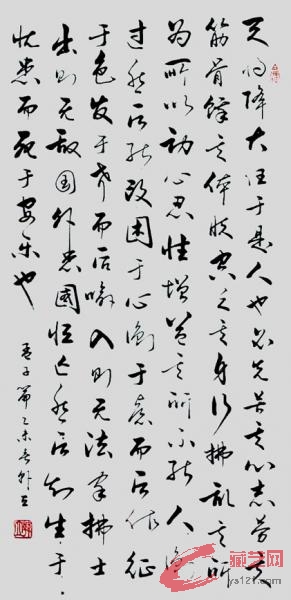 天将降大任于是人也必先苦其心志劳其
筋骨饿其体肤空乏其身行拂乱其所
为所以动心忍性增益其所不能人恒
过然后能改困于心衡于虑而后作征
于色发于声而后喻入则无法家拂士
出则无敌国外患國恒亡然后知生于
忧患而死于安乐也
孟子篇乙未
藏艺网
ys121.com